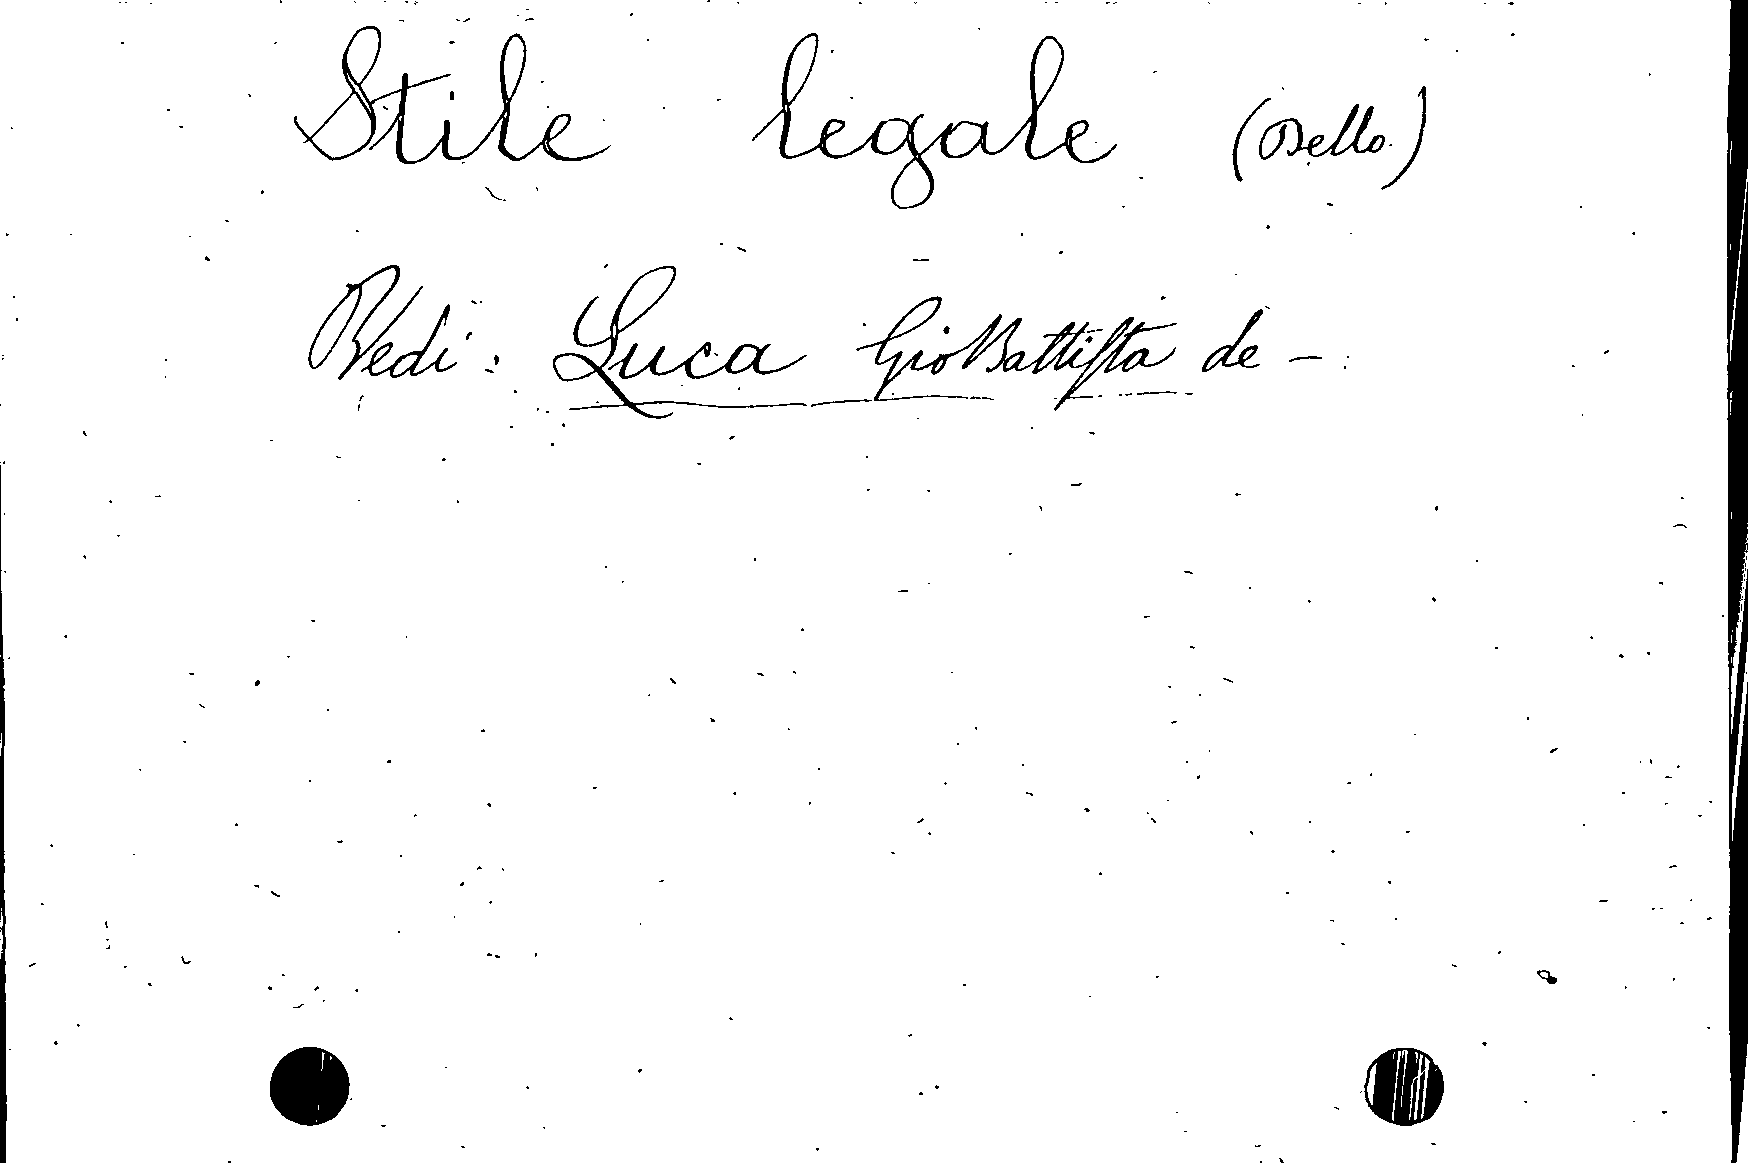 Stile legale (Dello)
Vedi: Luca Gio Battista de -